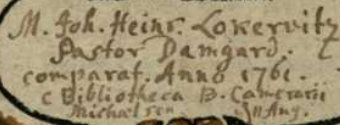 M. Joh. Heinr. Lokervitz
Pastor Damgard.
comparat. Anno 1761.
e Bibliotheca B. Camerarii
Michaelsen. 11 Aug.